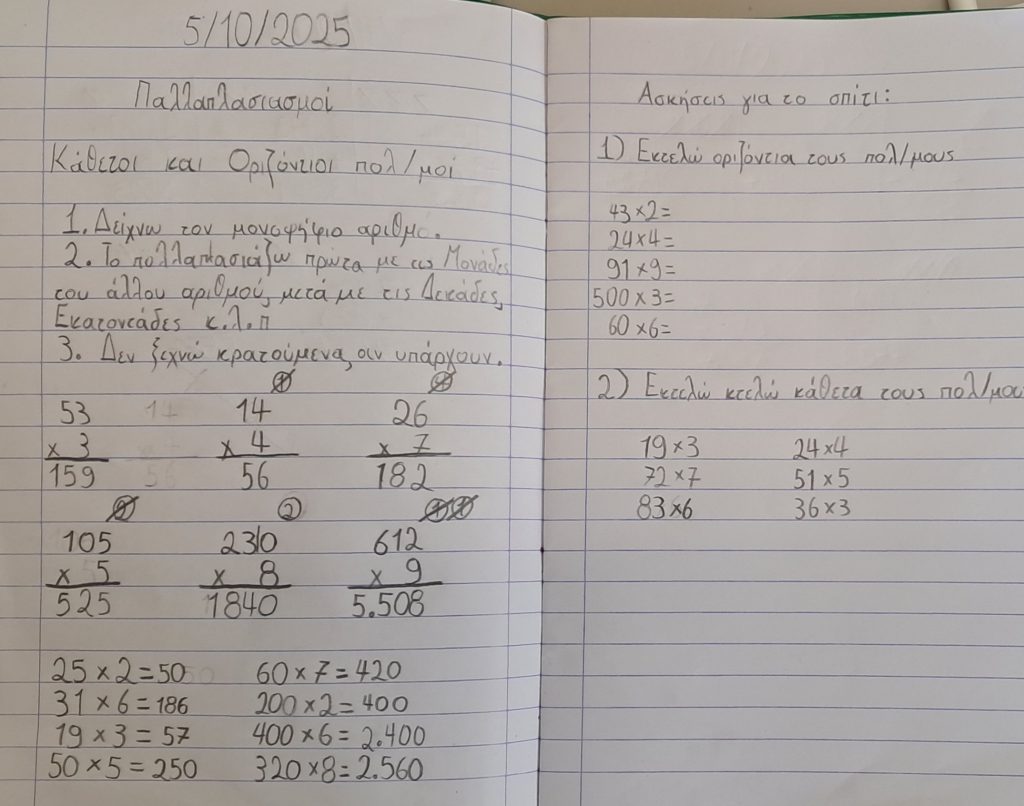 5/10/2025
Παλλαπλασιασμοί
Κάθετοι και Οριζόντιοι πολ/μοί
1. Δείχνω τον μονοψήφιο αριθμο.
2. Το πολλαπλασιάζω πρώτα με τις Μονάδες
του άλλου αριθμού, μετά με τις Δεκάδες,
Εκατοντάδες κ.λ.π
3. Δεν ξεχνώ κρατούμενα, αν υπάρχουν.
53 14 26
x 3 x 4 x 7
159 56 182
2
105 230 612
x 5 x 8 x 9
525 1840 5.508
25 x 2 = 50 60 x 7 = 420
31 x 6 = 186 200 x 2 = 400
19 x 3 = 57 400 x 6 = 2.400
50 x 5 = 250 320 x 8 = 2.560
Ασκήσεις για το σπίτι:
1) Εκτελώ οριζόντια τους πολ/μους
43 x 2 =
24 x 4 =
91 x 9 =
500 x 3 =
60 x 6 =
2) Εκτελώ κτελώ κάθετα τους πολ/μου
19 x 3 24 x 4
72 x 7 51 x 5
83 x 6 36 x 3